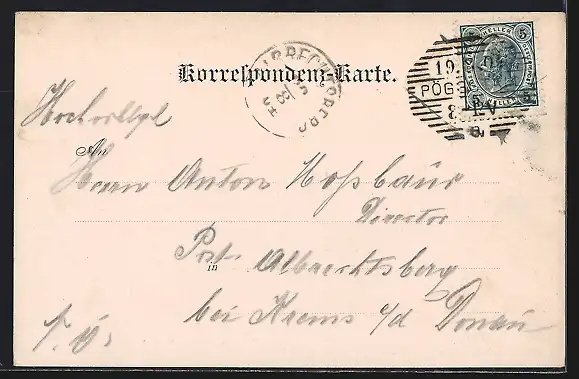 Korrespondenz-Karte.
5 HELLER 5
PÖGG
Hochwohlgb
An
Herrn Anton Hoßbaur
Director
Post Albrechtsberg
in
bei Krems a/d Donau
N. Ö.